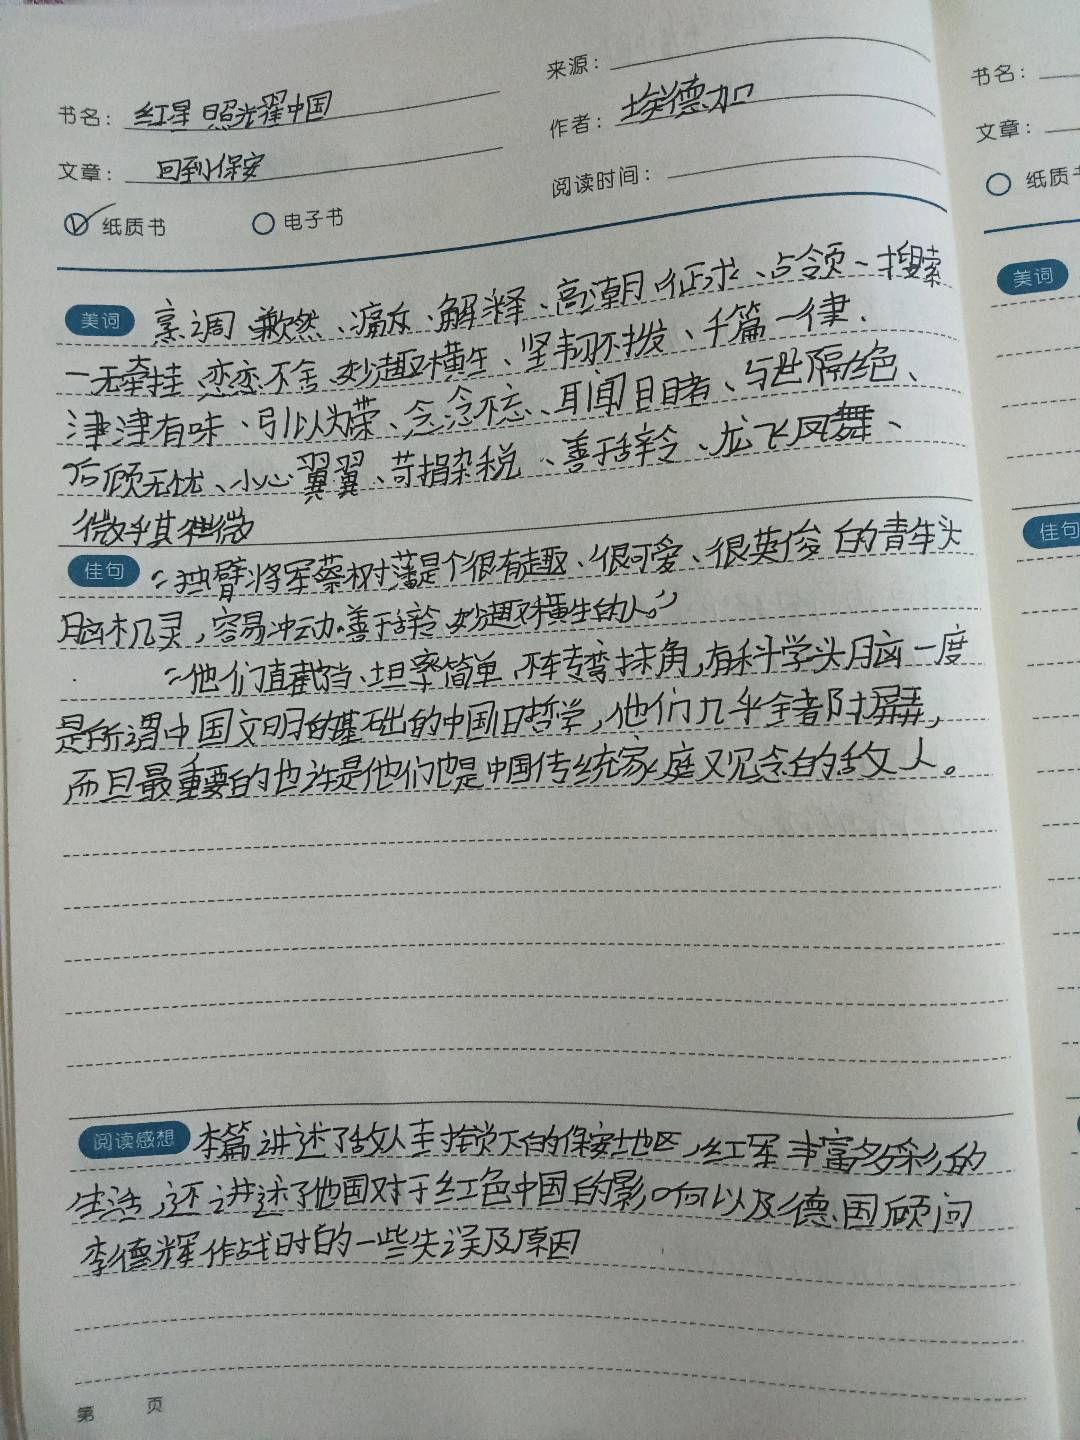 来源：
书名： 红星照光耀中国
作者： 埃德加
文章： 回到保安
阅读时间：
纸质书 电子书
美词 烹调、歉然、痛斥、解释、高潮、征求、占领、搜索
一无牵挂、恋恋不舍、妙趣横生、坚韧不拔、千篇一律、
津津有味、引以为荣、念念不忘、耳闻目睹、与世隔绝、
后顾无忧、小心翼翼、苛捐杂税、善于辞令、龙飞凤舞、
微乎其微
佳句 “独臂将军蔡树藩是个很有趣、很可爱、很英俊的青年头
脑机灵，容易冲动、善于辞令、妙趣横生的人。”
“他们直截当、坦率简单、不转弯抹角，有科学头脑一度
是所谓中国文明的基础的中国旧哲学，他们几乎全都摒弃，
而且最重要的也许是他们也是中国传统家庭观念的敌人。
阅读感想 本篇讲述了敌人封锁下的保安地区，红军丰富多彩的
生活，还讲述了他国对于红色中国的影响以及德国顾问
李德辉作战时的一些失误及原因
第 页
书名：
文章：
纸质书
美词
佳句